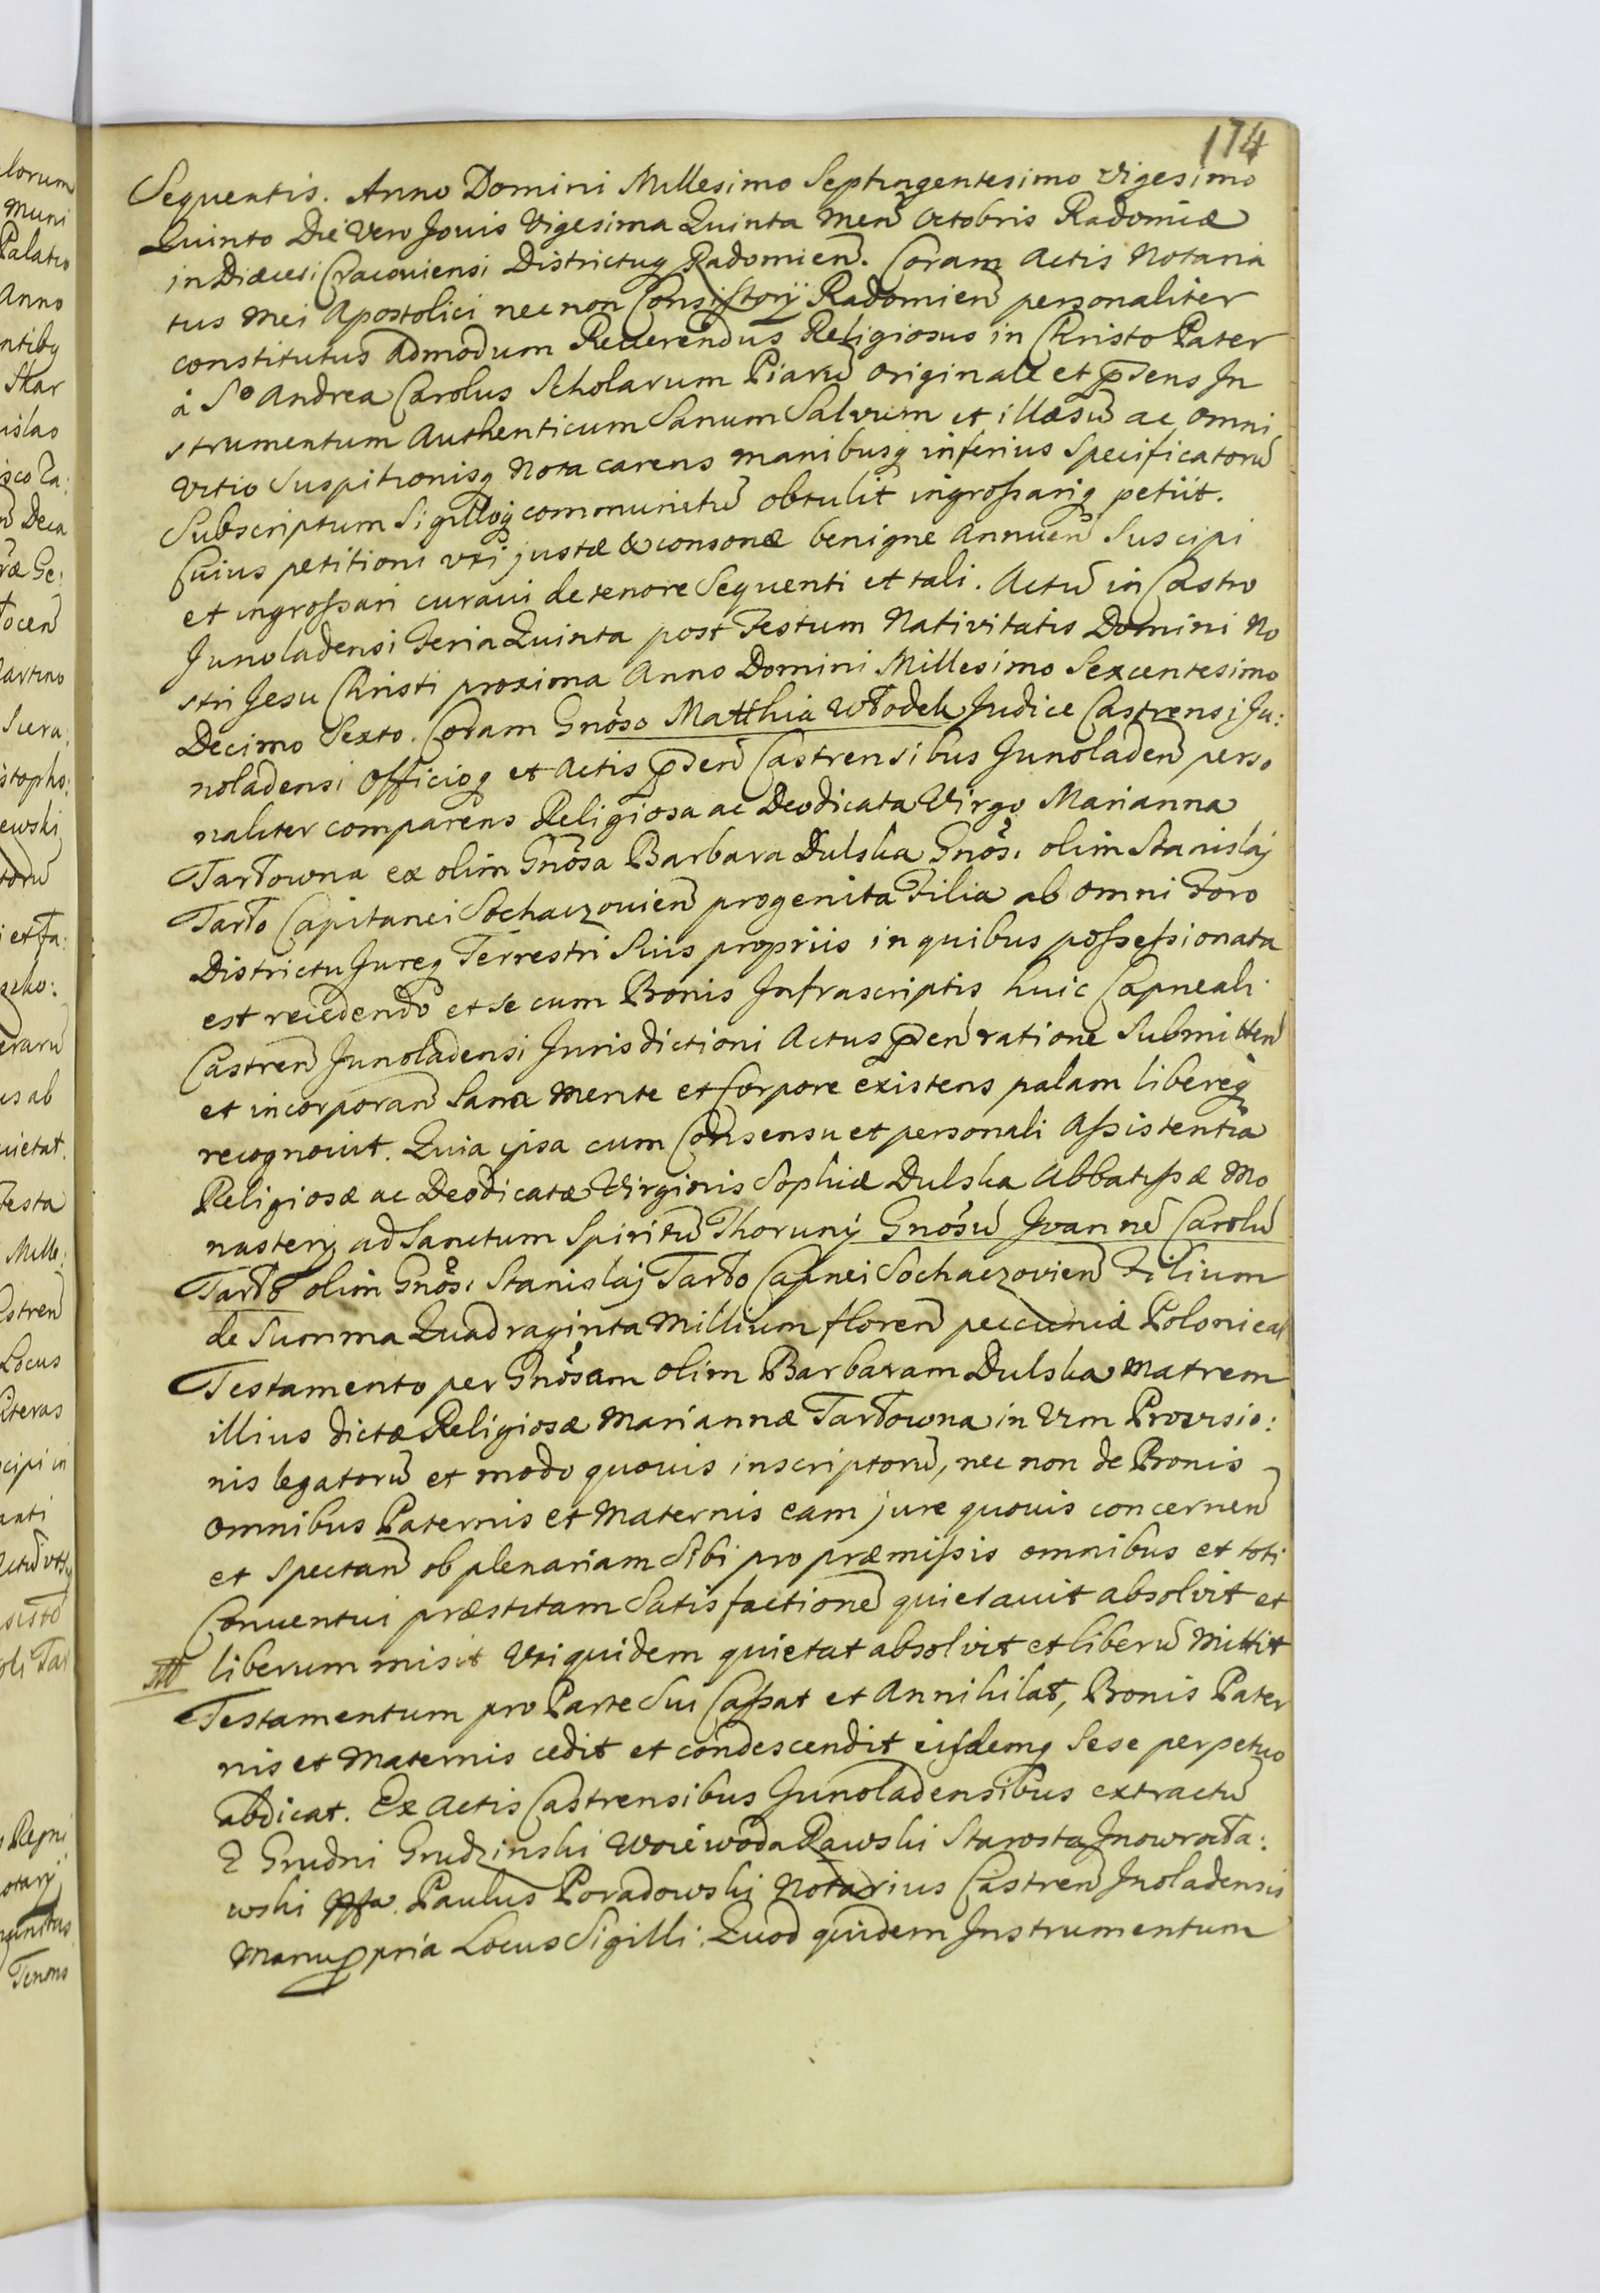 174
Sequentis. Anno Domini Millesimo Septingentesimo Vigesimo
Quinto Die Vero Jovis Vigesima Quinta Men̄ Octobris Radomiæ
in Diæcesi Cracoviensi Districtuq Radomien̄. Coram Actis Notaria
tus mei Apostolici nec non Consistorÿ Radomien̄ personaliter
constitutus Admodum Reverendus Religiosus in Christo Pater
à So Andrea Carolus Scholarum Piarū originale et p̄sens In
strumentum Authenticum Sanum Salvum et illæsū ac omni
Vitio Suspitionisq Nota carens manibusq inferius Specificatorū
Subscriptum Sigilloq communitū obtulit ingrossariq petiit.
Cuius petitioni uti justæ & consonæ benigne Annuen̄ Suscipi
et ingrossari curavi de tenore Sequenti et tali. Actū in Castro
Junoladensi Feria Quinta post Festum Nativitatis Domini No
stri Jesu Christi proxima Anno Domini Millesimo Sexcentesimo
Decimo Sexto. Coram Gn̄oso Matthia Włodek Judice Castrensi Ju:
noladensi Officioq et Actis p̄sen̄ Castrensibus Junoladen̄ perso
naliter comparens Religiosa ac Deodicata Virgo Marianna
Tarłowna ex olim Gn̄osa Barbara Dulska Gn̄osi olim Stanislaj
Tarło Capitanei Sochaczovien̄ progenita Filia ab omni Foro
Districtu Jureq Terrestri Suis propriis in quibus possessionata
est recedendo et se cum Bonis Infrascriptis huic Capneali
Castren̄ Junoladensi Jurisdictioni Actus p̄sen̄ ratione Submitten̄
et incorporan̄ Sana Mente et Corpore existens palam libereq
recognovit. Quia ipsa cum Consensu et personali Assistentia
Religiosæ ac Deodicatæ Virginis Sophiæ Dulska Abbatissæ Mo
nasterij ad Sanctum Spiritū Thorunÿ Gn̄osū Joannē Carolū
Tarło olim Gn̄osi Stanislaj Tarło Capnei Sochaczovien̄ Filium
de Summa Quadraginta Millium floren̄ pecuniæ Polonical
Testamento per Gn̄osam olim Barbaram Dulska Matrem
illius dictæ Religiosæ Mariannæ Tarłowna in Vim Provisio:
nis legatorū et modo quovis inscriptorū, nec non de Bonis
omnibus Paternis et Maternis eam jure quovis concernen̄
et spectan̄ ob plenariam Sibi pro præmissis omnibus et toti
Conventui præstitam Satisfactionē quietavit absolvit et
liberum misit Uti quidem quietat absolvit et liberū Mittit
Testamentum pro Parte Sui Cassat et Annihilat, Bonis Pater
nis et Maternis cedit et condescendit eisdemq Sese perpetuo
abdicat. Ex Actis Castrensibus Junoladensibus extractū
Z Grudni Grudzinski Woiewoda Rawski Starosta Inowrocła:
wski Paulus Poradowski Notarius Castren̄ Jnoladensis
Manu p̄pria Locus Sigilli. Quod quidem Instrumentum